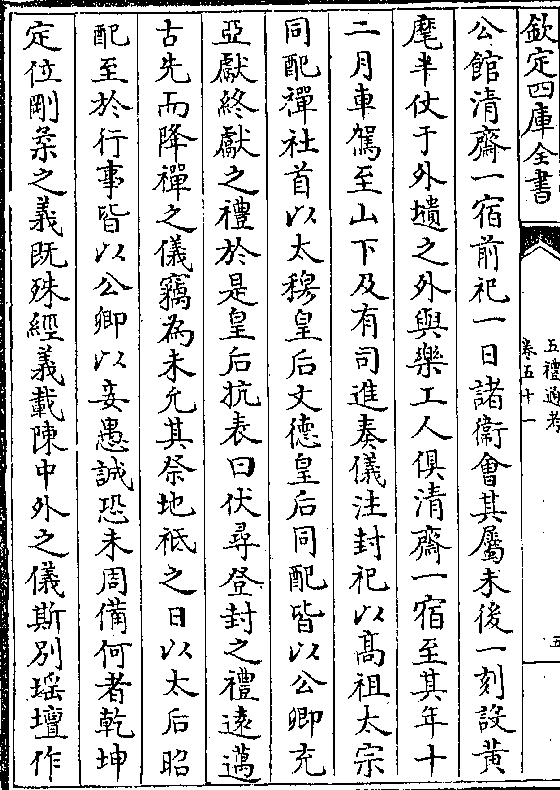 欽定四庫全書
五禮通考
卷五十一
五
公館清齋一宿前祀一日諸衞會其屬未後一刻設黃
麾半仗于外壝之外與樂工人俱清齋一宿至其年十
二月車駕至山下及有司進奏儀注封祀以髙祖太宗
同配禪社首以太穆皇后文徳皇后同配皆以公卿充
亞獻終獻之禮於是皇后抗表曰伏尋登封之禮逺邁
古先而降禪之儀竊為未允其祭地祇之日以太后昭
配至於行事皆以公卿以妾愚誠恐未周備何者乾坤
定位剛柔之義既殊經義載陳中外之儀斯別瑶壇作